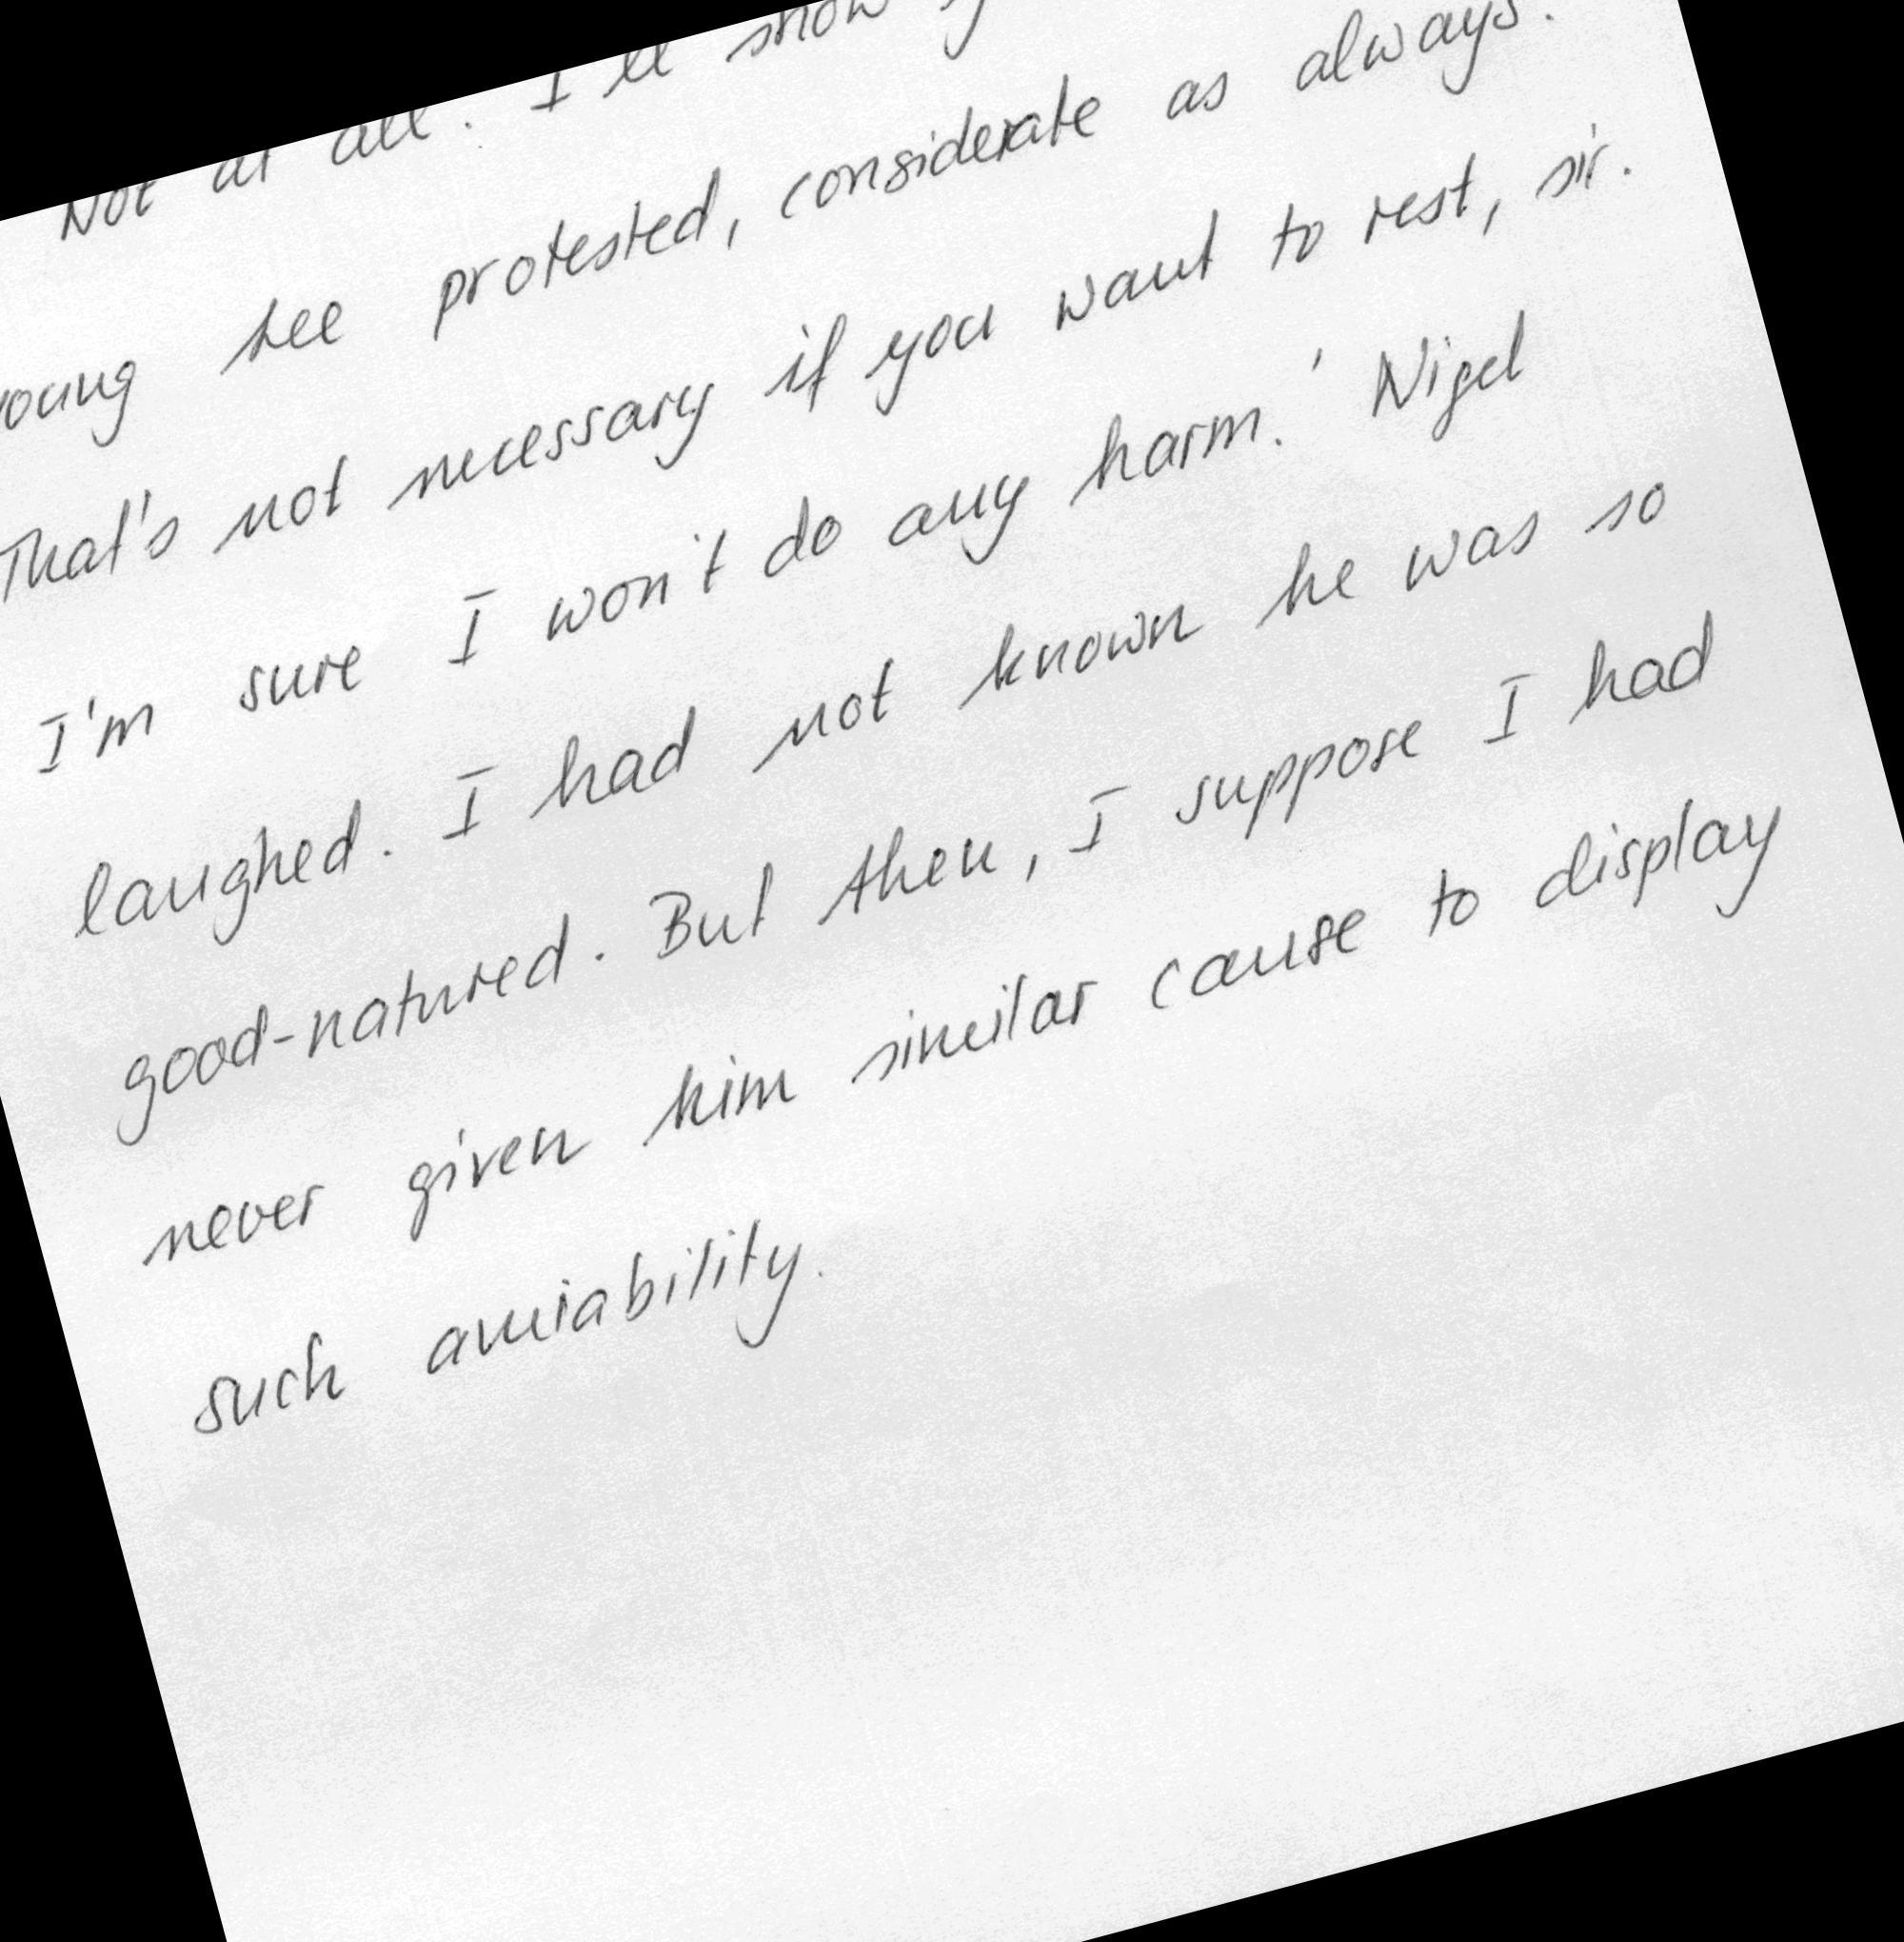 Not at all. I'll show
young Lee protested, considerate as always.
That's not necessary if you want to rest, sir.
I'm sure I won't do any harm.' Nigel
laughed. I had not known he was so
good-natured. But then, I suppose I had
never given him similar cause to display
such amiability.